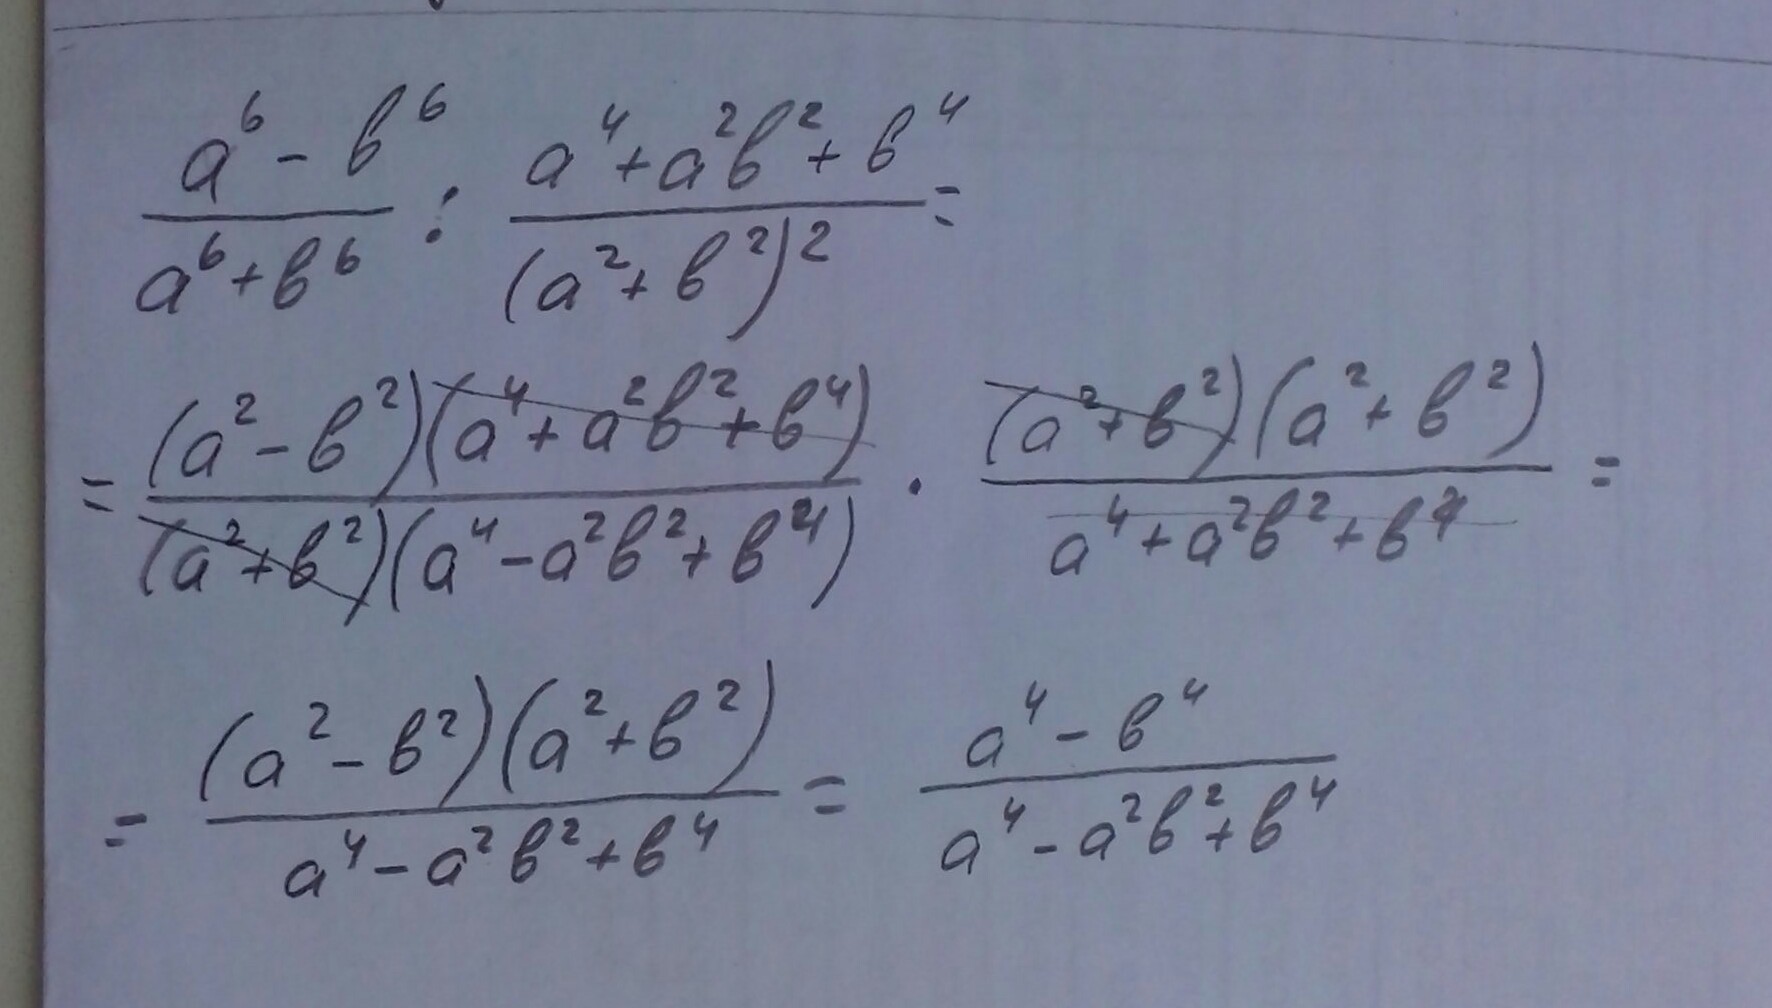 a⁶ - b⁶ / a⁶ + b⁶ : a⁴ + a²b² + b⁴ / (a² + b²)² =
= (a² - b²)(a⁴ + a²b² + b⁴) / (a² + b²)(a⁴ - a²b² + b⁴) · (a² + b²)(a² + b²) / a⁴ + a²b² + b⁴ =
= (a² - b²)(a² + b²) / a⁴ - a²b² + b⁴ = a⁴ - b⁴ / a⁴ - a²b² + b⁴